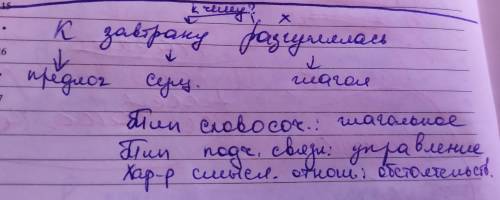 к чему? х
К завтраку разгулялась
предлог сущ. глагол
Тип словосоч.: глагольное
Тип подч. связи: управление
Хар-р смысл. отнош: обстоятельств.